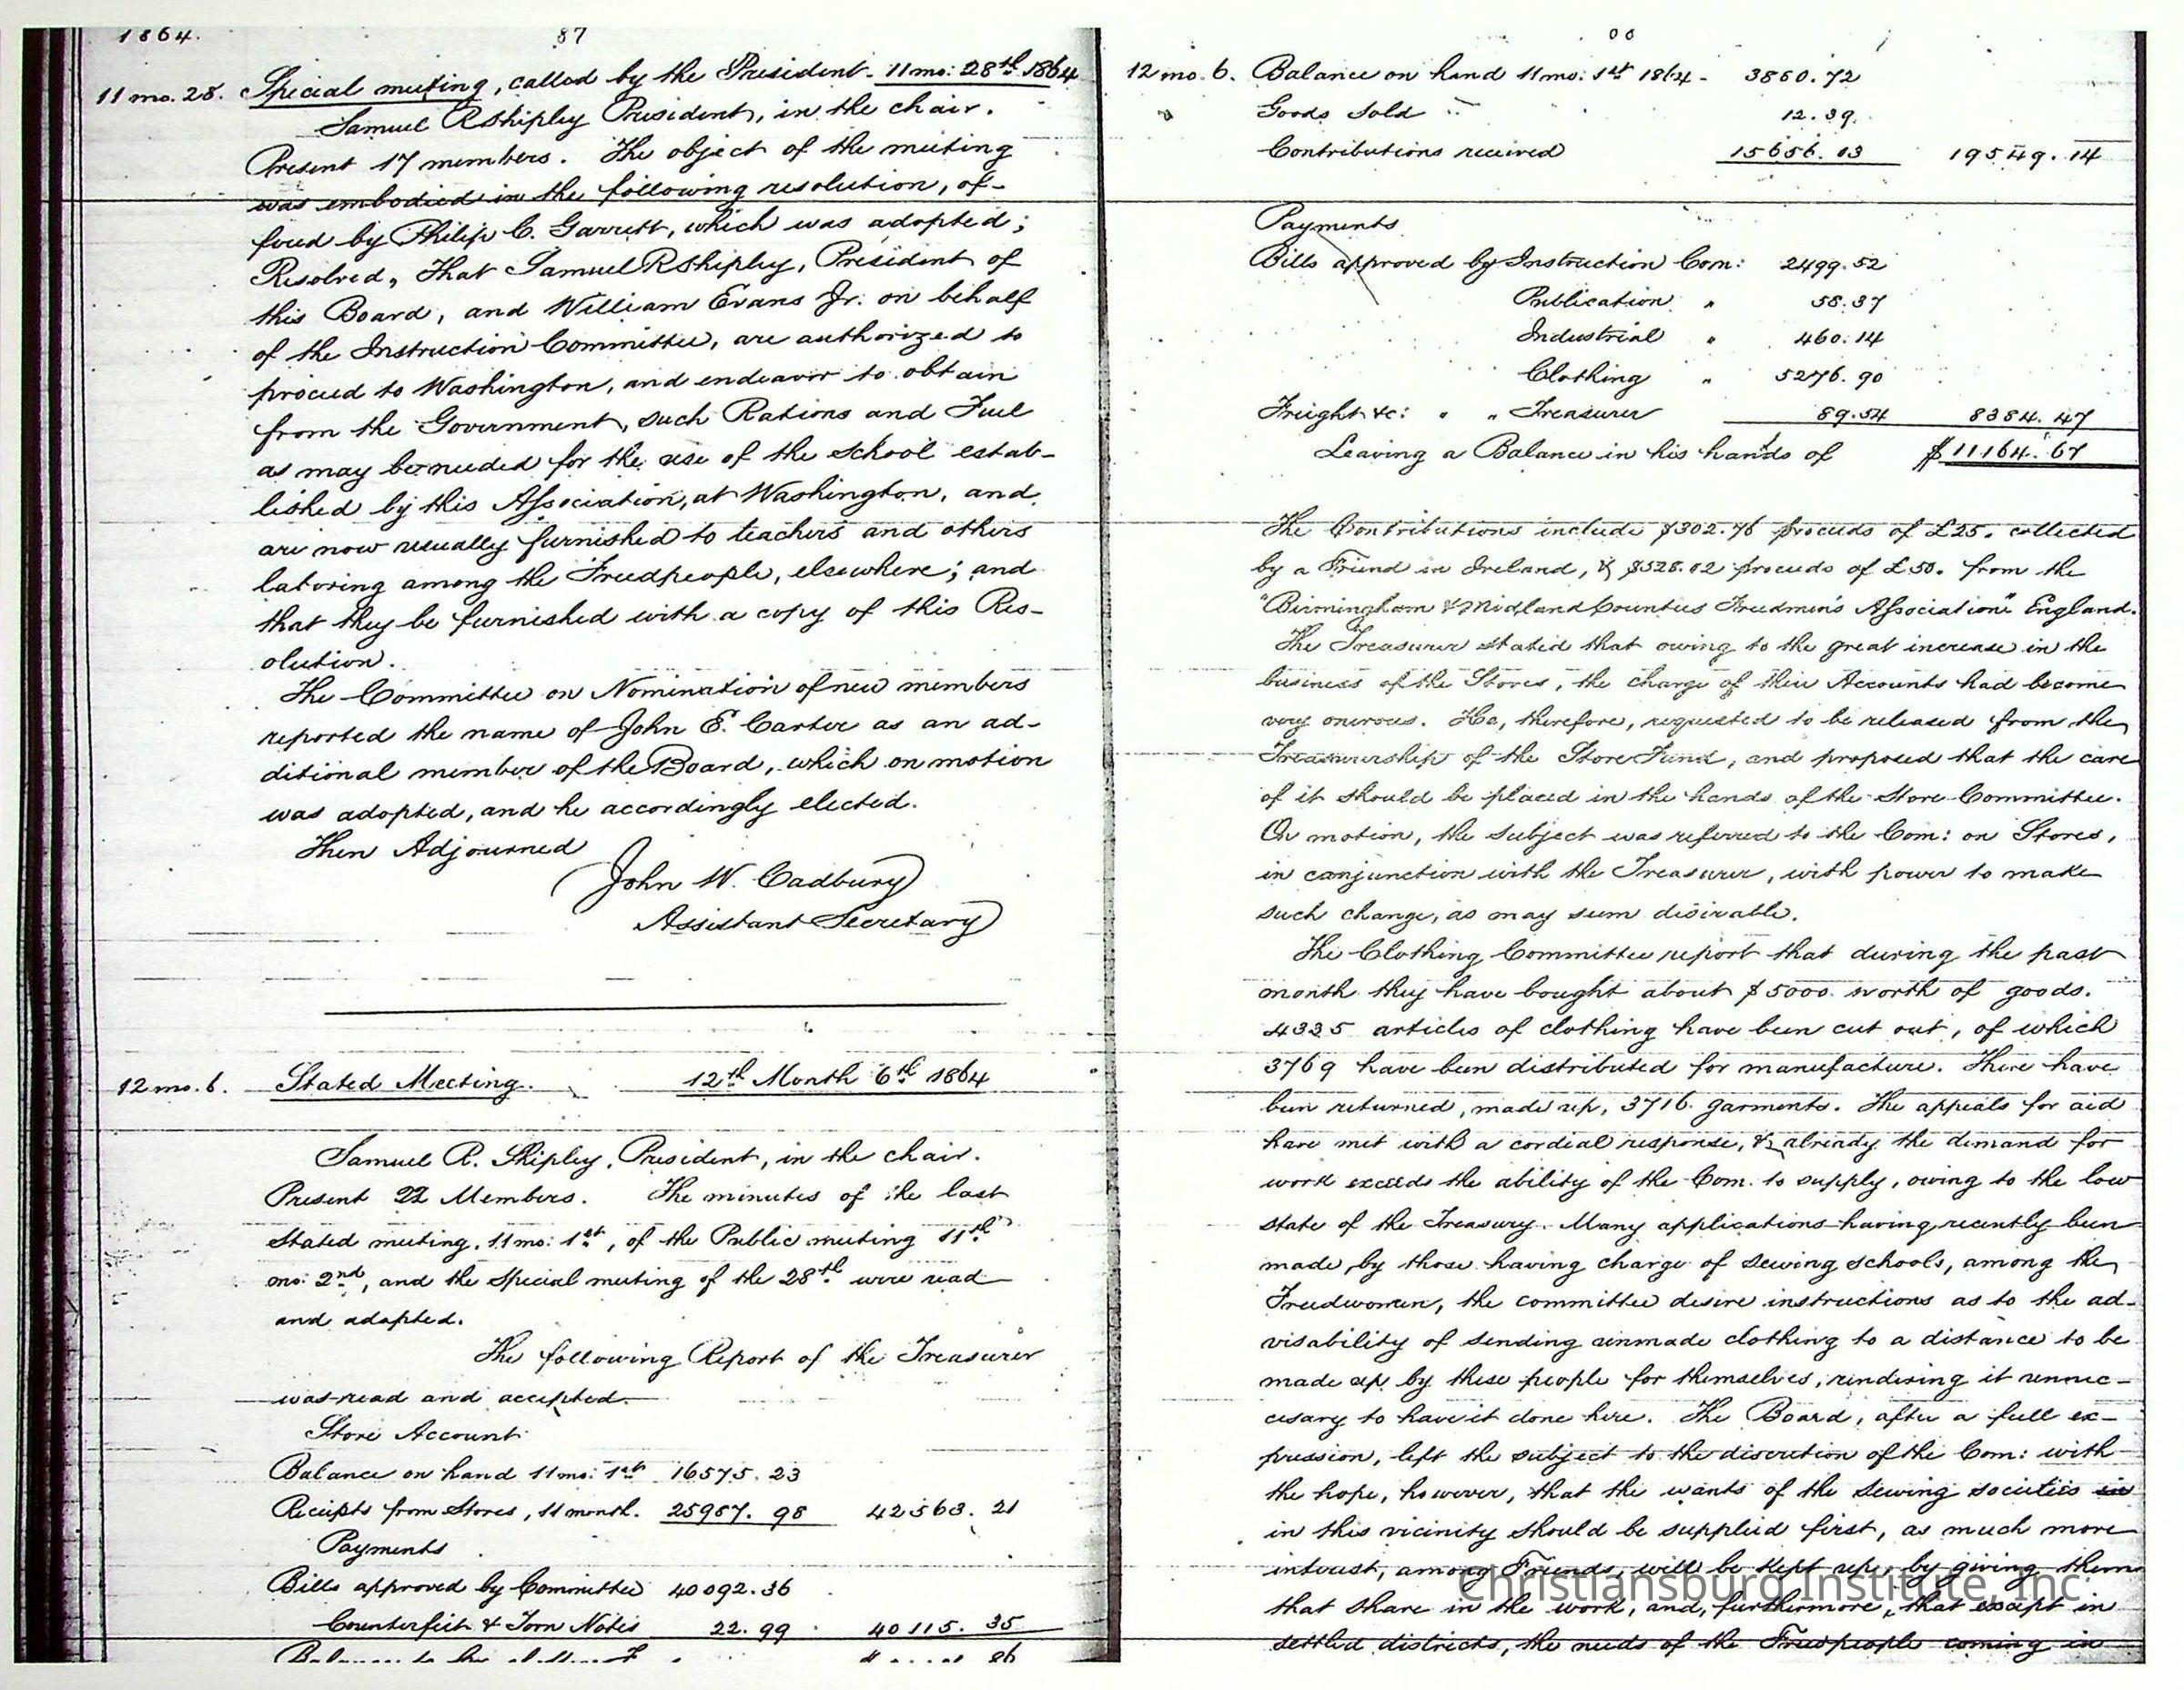 1864.
87
11 mo. 28. Special meeting, called by the President - 11 mo: 28th 1864
Samuel R Shipley President, in the chair.
Present 17 members. The object of the meeting
was embodied in the following resolution, of-
fered by Philip C. Garrett, which was adopted;
Resolved, That Samuel R Shipley, President of
this Board, and William Evans Jr. on behalf
of the Instruction Committee, are authorized to
proceed to Washington, and endeavor to obtain
from the Government, such Rations and Fuel
as may be needed for the use of the School estab-
lished by this Association, at Washington, and
are now usually furnished to teachers and others
laboring among the Freedpeople, elsewhere; and
that they be furnished with a copy of this Res-
olution.
The Committee on Nomination of new members
reported the name of John E. Carter as an ad-
ditional member of the Board, which on motion
was adopted, and he accordingly elected.
Then Adjourned
John W. Cadbury
Assistant Secretary
12 mo. 6. Stated Meeting. 12th Month 6th 1864
Samuel R. Shipley, President, in the chair.
Present 22 Members. The minutes of the last
Stated meeting, 11 mo: 1st, of the Public meeting 11th
mo: 2nd, and the special meeting of the 28th were read
and adopted.
The following Report of the Treasurer
was read and accepted.
Store Account
Balance on hand 11 mo: 1st 16575. 23
Receipts from Stores, 11 month. 25987. 98 42563. 21
Payments
Bills approved by Committee 40092. 36
Counterfeit & Torn Notes 22. 99 40115. 35
12 mo. 6. Balance on hand 11 mo: 1st 1864 - 3880.72
Goods Sold " 12.39.
Contributions received 15656. 03 19549. 14
Payments
Bills approved by Instruction Com: 2499.52
Publication " 58.37
Industrial " 460.14
Clothing " 5276. 90
Freight &c: " " Treasurer 89.54 8384. 47
Leaving a Balance in his hands of $11164. 67
The Contributions include $302.76 proceeds of £25. collected
by a Friend in Ireland, & $528.02 proceeds of £50. from the
"Birmingham & Midland Counties Freedmen's Association" England.
The Treasurer stated that owing to the great increase in the
business of the Stores, the charge of their Accounts had become
very onerous. He, therefore, requested to be released from the
Treasurership of the Store Fund, and proposed that the care
of it should be placed in the hands of the Store Committee.
On motion, the subject was referred to the Com: on Stores,
in conjunction with the Treasurer, with power to make
such change, as may seem desirable.
The Clothing Committee report that during the past
month they have bought about $5000 worth of goods.
4335 articles of clothing have been cut out, of which
3769 have been distributed for manufacture. There have
been returned, made up, 3716 garments. The appeals for aid
have met with a cordial response, & already the demand for
work exceeds the ability of the Com. to supply, owing to the low
state of the Treasury. Many applications having recently been
made, by those having charge of sewing schools, among the
Freedwomen, the committee desire instructions as to the ad-
visability of sending unmade clothing to a distance to be
made up by these people for themselves, rendering it unnec-
cesary to have it done here. The Board, after a full ex-
pression, left the subject to the discretion of the Com: with
the hope, however, that the wants of the sewing societies in
in this vicinity should be supplied first, as much more
interest, among Friends, will be kept up, by giving them
that share in the work, and, furthermore, that except in
settled districts, the needs of the Freedpeople coming in
Christiansburg Institute, Inc